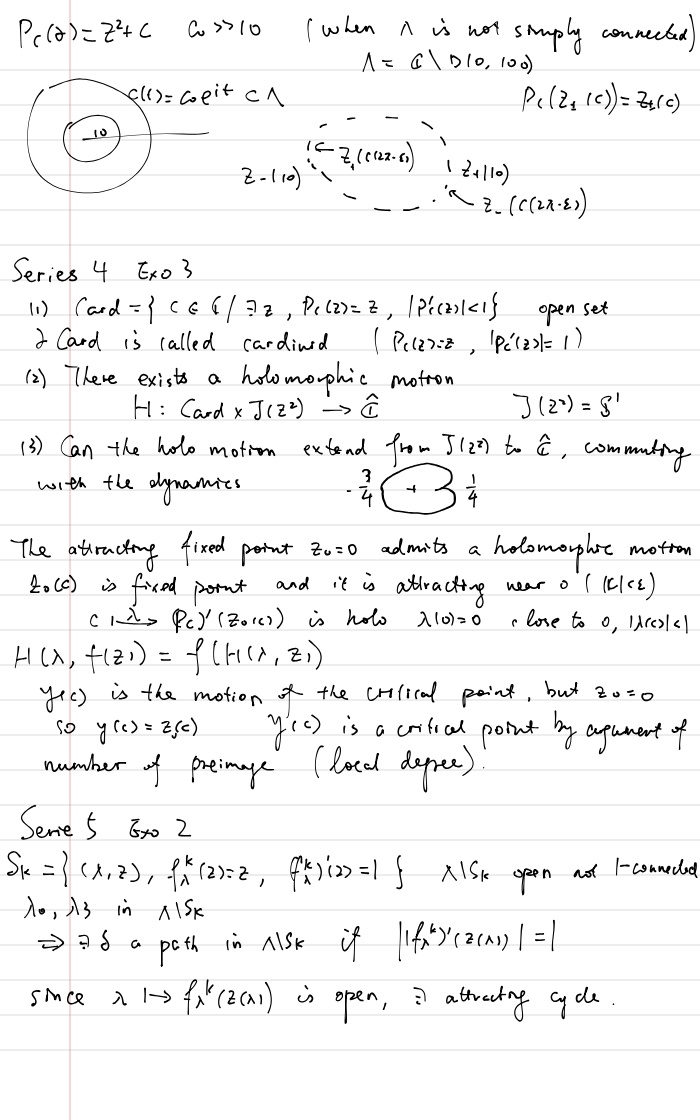 Pc(z) = z²+c   c₀ >> 10   (when Λ is not simply connected)
Λ = ℂ \ D(0, 100)
c(t) = c₀e^{it} ⊂ Λ
Pc(z₁(c)) = z₁(c)
10
z₊(c(2π-ε))
z₋(10)
z₊(10)
z₋(c(2π-ε))
Series 4   Exo 3
(1) Card = { c ∈ ℂ / ∃z, Pc(z)=z, |Pc'(z)|<1}   open set
∂ Card is called cardioid   ( Pc(z)=z, |Pc'(z)|=1 )
(2) There exists a holomorphic motion
H : Card × J(z²) → Ĉ   J(z²) = S¹
(3) Can the holo motion extend from J(z²) to Ĉ, commuting
with the dynamics   -3/4   +   1/4
The attracting fixed point z₀=0 admits a holomorphic motion
z₀(c) is fixed point and it is attracting near 0 (|c|<ε)
c ↦^λ (Pc)'(z₀(c)) is holo   λ(0)=0   close to 0, |λ(c)|<1
H(λ, f(z)) = f(H(λ, z))
y(c) is the motion of the critical point, but z₀=0
so y(c) = z₀(c)   y(c) is a critical point by argument of
number of preimage (local degree).
Serie 5   Exo 2
Sk = { (λ,z), f_λ^k(z)=z, (f_λ^k)'(z)=1 }   Λ\Sk open not 1-connected
λ₀, λ₃ in Λ\Sk
⇒ ∃ δ a path in Λ\Sk   if   |(f_λ^k)'(z(λ))| = 1
since λ ↦ f_λ^k(z(λ)) is open, ∃ attracting cycle.